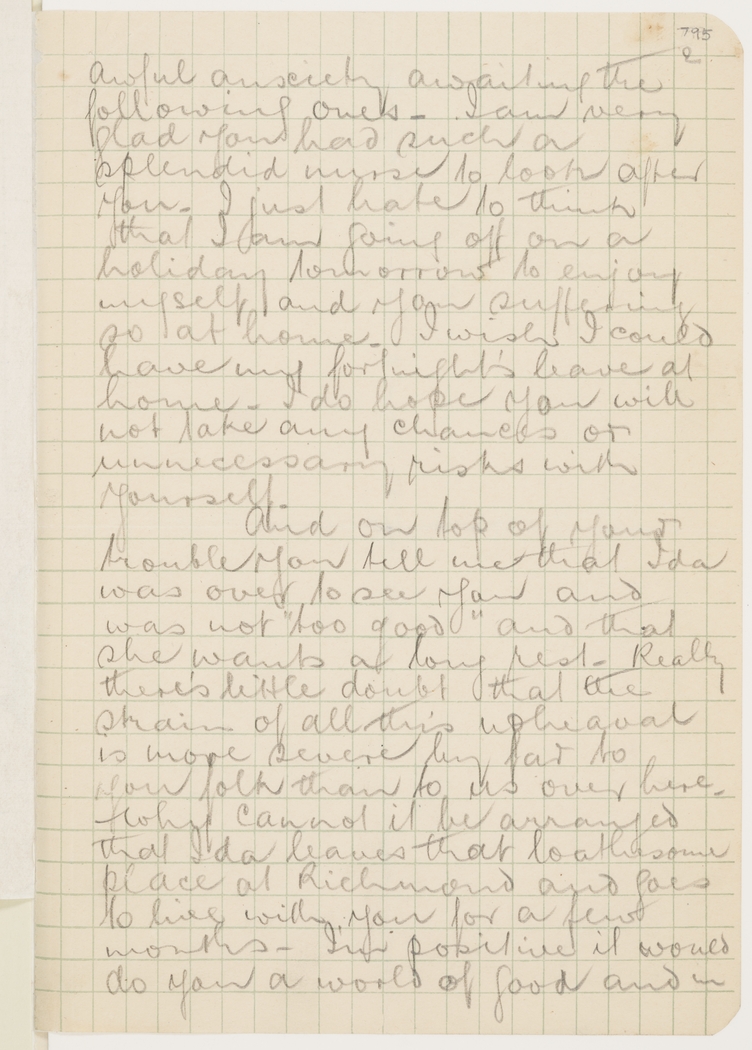 795
2
awful anxiety awaiting the
following ones - I am very
glad you had such a
splendid nurse to look after
you - I just hate to think
that I am going off on a
holiday tomorrow to enjoy
myself and you suffering
so at home - I wish I could
have my fortnight's leave at
home - I do hope you will
not take any chances or
unnecessary risks with
yourself.
And on top of your
trouble you tell me that Ida
was over to see you and
was not "too good" and that
she wants a long rest - Really
there's little doubt that the
strain of all this upheaval
is more severe by far to
you folk than to us over here -
Why cannot it be arranged
that Ida leaves that loathesome
place at Richmond and goes
to live with you for a few
months - I'm positive it would
do you a world of good and